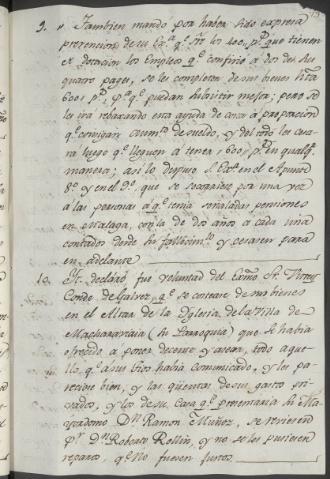 9. " Tambien mandó por haber sido expresa
prevencion de su Ex.ª q.e sre los 400 p.s que tienen
de dotación los Empleos q.e confirió a dos de sus
quatro pages, se les complete de sus bienes hta
600 p.s, p.ª q.e puedan subsistir mejor; pero se
les irá rebaxando esta ayuda de costa á proporcion
q.e consigan aum.to de sueldo, y del todo les cesa
rá luego q.e lleguen á tener 600 p.s en qualq.ª
manera; asi lo dispuso S. Ex.ª en el Apunte
8.º y en el 9.º, que se socorriese por una vez
á las personas á q.n tenia señaladas pensiones
en Malaga, con la de dos años á cada una
contados desde su fallecim.to y cesaren para
en adelante
10. Yt. declaró fue voluntad del Exmo. Sr. Virrey
Conde de Galvez, q.e se costease de sus bienes
en el Altar de la Yglesia de la Villa de
Macharaviaia (su Parroquia) que se habia
ofrecido á poner decente y asear, todo aque-
llo q.e á sus tios habia comunicado, y les pa-
reciese bien, y las qüentas de sus gastos pri-
vados, y los de su Casa q.e presentaria su Ma-
yordomo Dn. Ramon Muñoz, se reviesen
p.r Dn. Roberto Rollin, y no se les pusiesen
reparos, q.e no fuesen justos